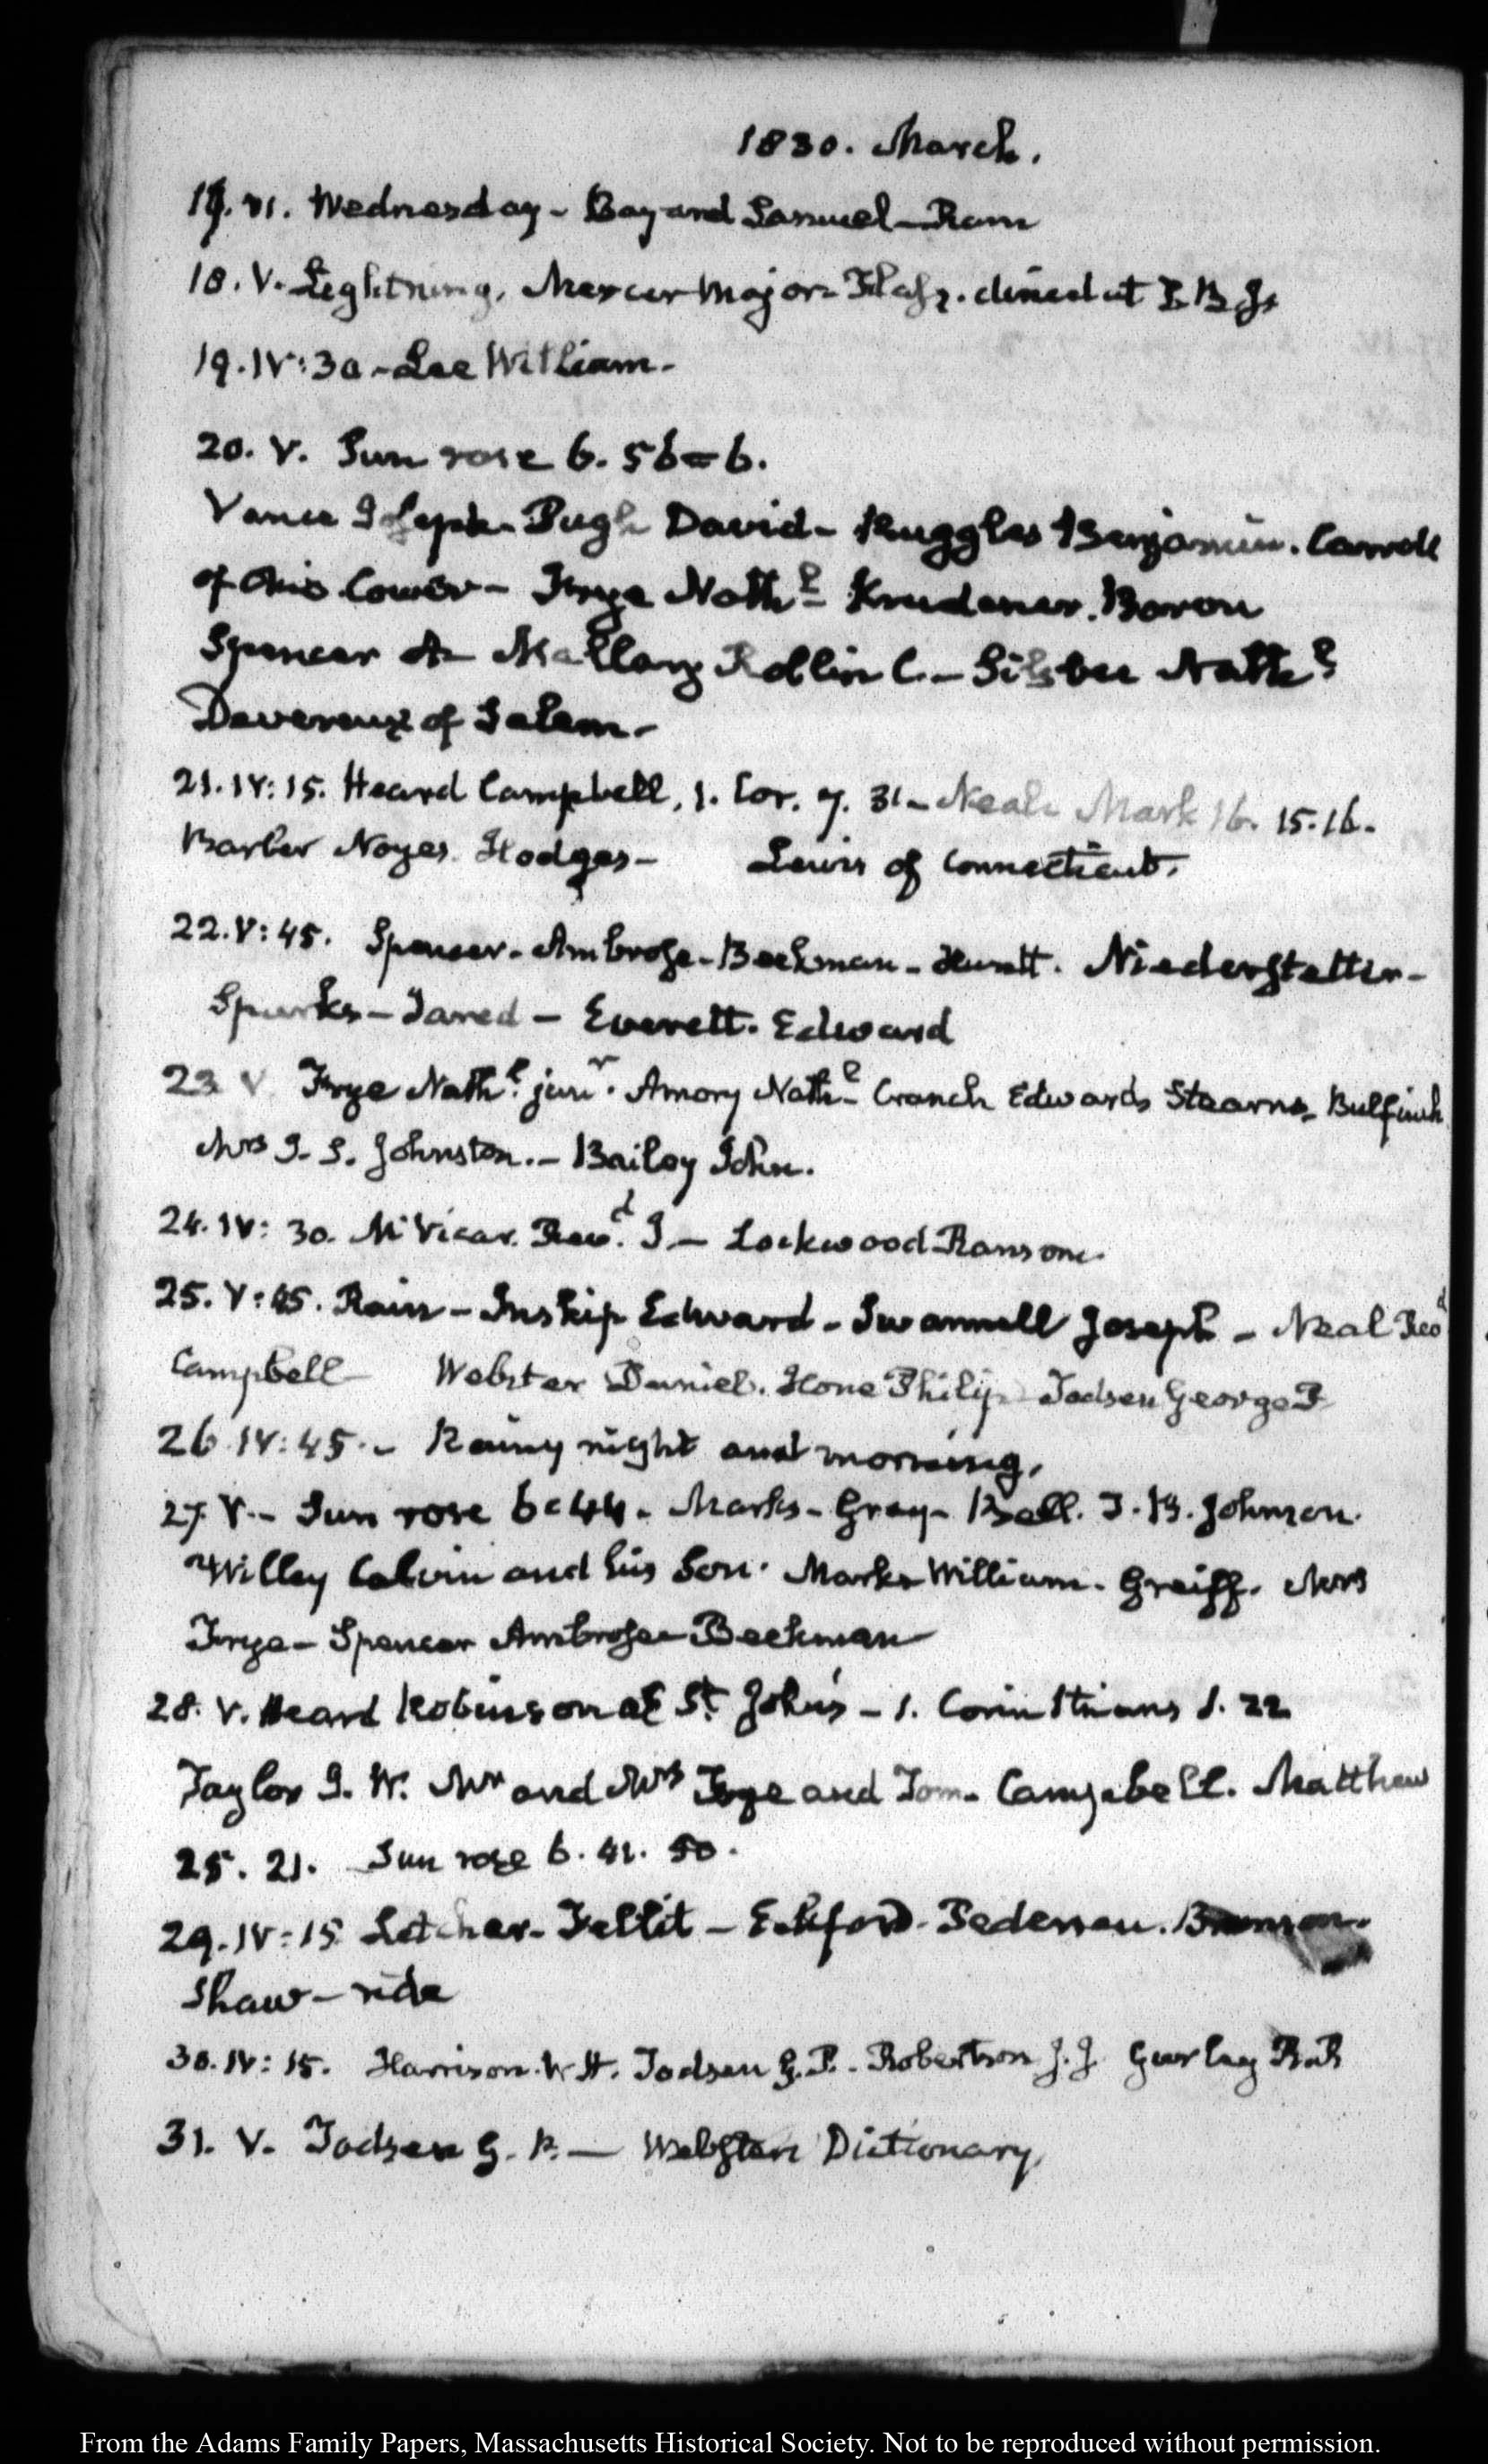 1830. March.
17. VI. Wednesday - Bayard Samuel - Rain
18. V. Lightning. Mercer Major - dined at
19. IV:30 - Lee William -
20. V. Sun rose 6. 56 = 6.
Vance Joseph - Pugh David - Ruggles Benjamin. Carroll
of Ohio - Frye Nathl Krudener. Baron
Spencer A - Mallary Rollin C. - Silsbee Nathl
Devereux of Salem -
21. IV:15. Heard Campbell, 1. Cor. 7. 31 - Neale Mark 16. 15.16.
Barber Noyes. Hodges - Lewis of Connecticut.
22. V:45. Spencer - Ambrose - Beekman - Niederstetter -
Sparks - Jared - Everett. Edward
23 V. Frye Nathl. junr. Amory Nathl Cranch Edwards Stearns - Bulfinch
Mrs J. S. Johnston. - Bailey John.
24. IV: 30. McVicar. Revd. J - Lockwood Ransom.
25. V:45. Rain - Inskip Edward - Swannell Joseph - Neal Revd
Campbell - Webster Daniel. Hone Philip - Todsen George P
26 IV:45. - Rainy night and morning.
27. V. - Sun rose 6 = 44. Marks - Gray - Ball. J. B. Johnson.
Willey Calvin and his Son. Marks William. Greiff. Mrs
Frye - Spencer Ambrose - Beekman
28. V. Heard Robinson at St. John's - 1. Corinthians 1. 22
Taylor J. W. Mr and Mrs Frye and Tom. Campbell. Matthew
25. 21. Sun rose 6. 41. 50.
29. IV:15 Letcher - Tellit - Eckford - Pedersen.
Shaw - ride
30. IV: 15. Harrison. W. H. Todsen G. P. - Robertson J. J Gurley R. R
31. V. Todsen G. P. - Webster Dictionary
From the Adams Family Papers, Massachusetts Historical Society. Not to be reproduced without permission.